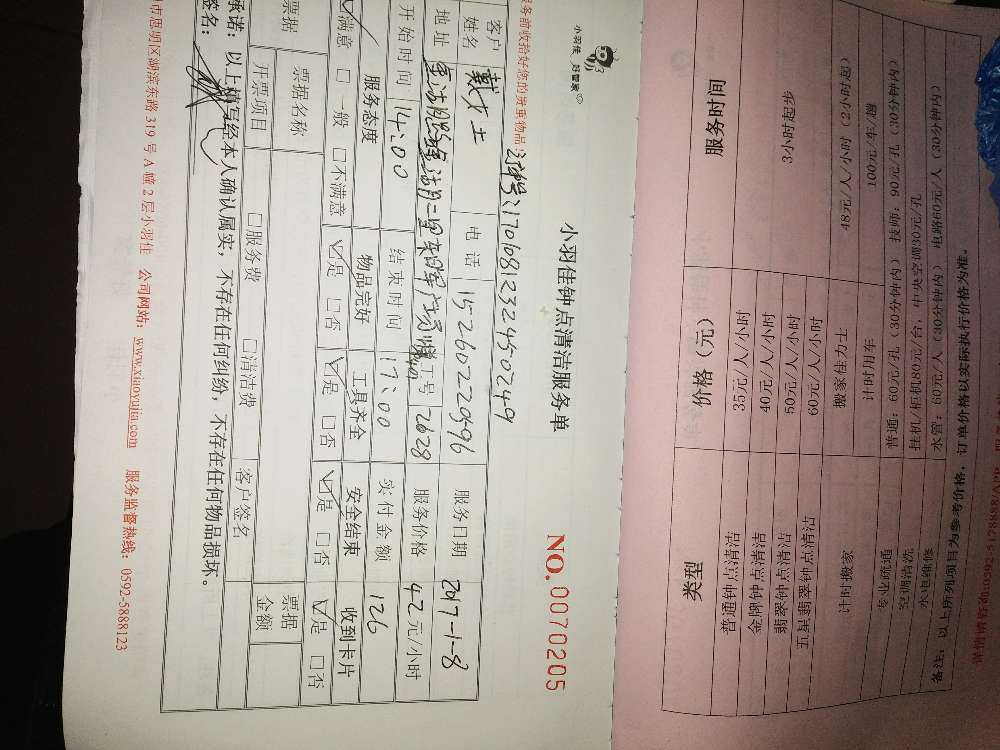 小羽佳 好管家
小羽佳钟点清洁服务单
NO.0070205
服务前收拾好您的贵重物品！
17010823245-0249
客户姓名 戴女士 电话 15260229596 服务日期 2017-1-8
地址 工号 2628 服务价格 42元/小时
开始时间 14:00 结束时间 17:00 实付金额 126
服务态度 物品完好 工具齐全 安全结束 收到卡片
☑满意 □一般 □不满意 ☑是 □否 ☑是 □否 ☑是 □否 ☑是 □否
票据 票据名称 票据金额
开票项目 □服务费 □清洁费 客户签名
承诺：以上填写经本人确认属实，不存在任何纠纷，不存在任何物品损坏。
签名：
市思明区湖滨东路319号A幢2层小羽佳 公司网站：www.xiaoyujia.com 服务监督热线：0592-5888123
类型 价格（元） 服务时间
普通钟点清洁 35元/人/小时 3小时起步
金牌钟点清洁 40元/人/小时
翡翠钟点清洁 50元/人/小时
五星翡翠钟点清洁 60元/人/小时
计时搬家 搬家佳力士 48元/人/小时（2小时起）
计时用车 100元/车/趟
专业疏通 普通：60元/孔（30分钟内） 技师：90元/孔（30分钟内）
空调清洗 挂机/柜机80元/台，中央空调30元/孔
水电维修 水管：60元/人（30分钟内） 电路60元/人（30分钟内）
备注：以上所列项目为参考价格，订单价格以实际执行价格为准。